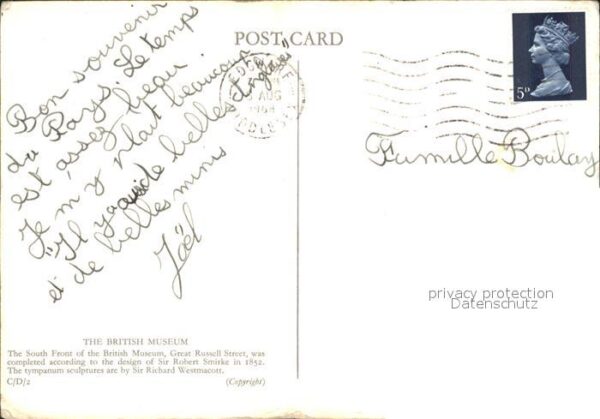 POST CARD
Bon souvenir
du Pays. Le temps
est assez beau.
Je m'y plait beaucoup
"Il y a de belles anglaises"
et de belles minis
Joël
5D
AUG
Famille Boulay
privacy protection
Datenschutz
THE BRITISH MUSEUM
The South Front of the British Museum, Great Russell Street, was
completed according to the design of Sir Robert Smirke in 1852.
The tympanum sculptures are by Sir Richard Westmacott.
C/D/2
(Copyright)